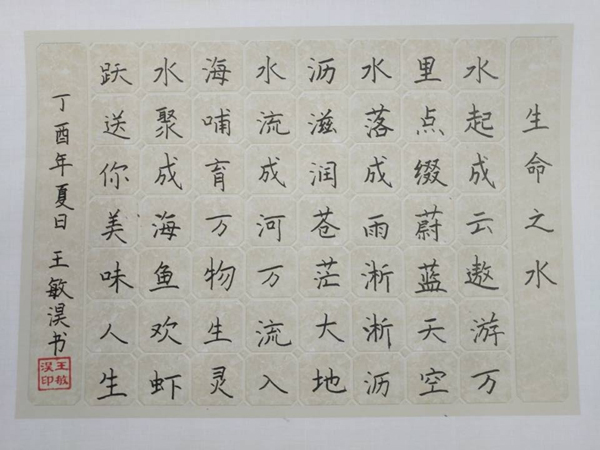 生命之水
水起成云遨游万
里点缀蔚蓝天空
水落成雨淅淅沥
沥滋润苍茫大地
水流成河万流入
海哺育万物生灵
水聚成海鱼欢虾
跃送你美味人生
丁酉年夏日 王敏淏书
王敏
淏印